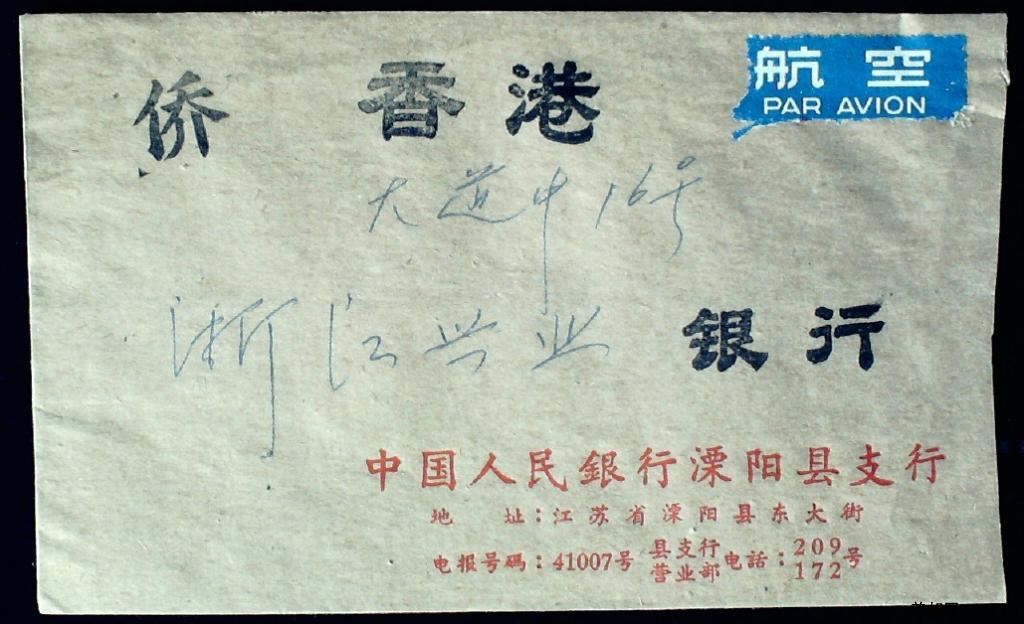 侨 香港
航空
PAR AVION
大道中16号
浙江兴业 银行
中国人民銀行溧阳县支行
地 址：江苏省溧阳县东大街
电报号碼：41007号 县支行 电話：209号
营业部 172